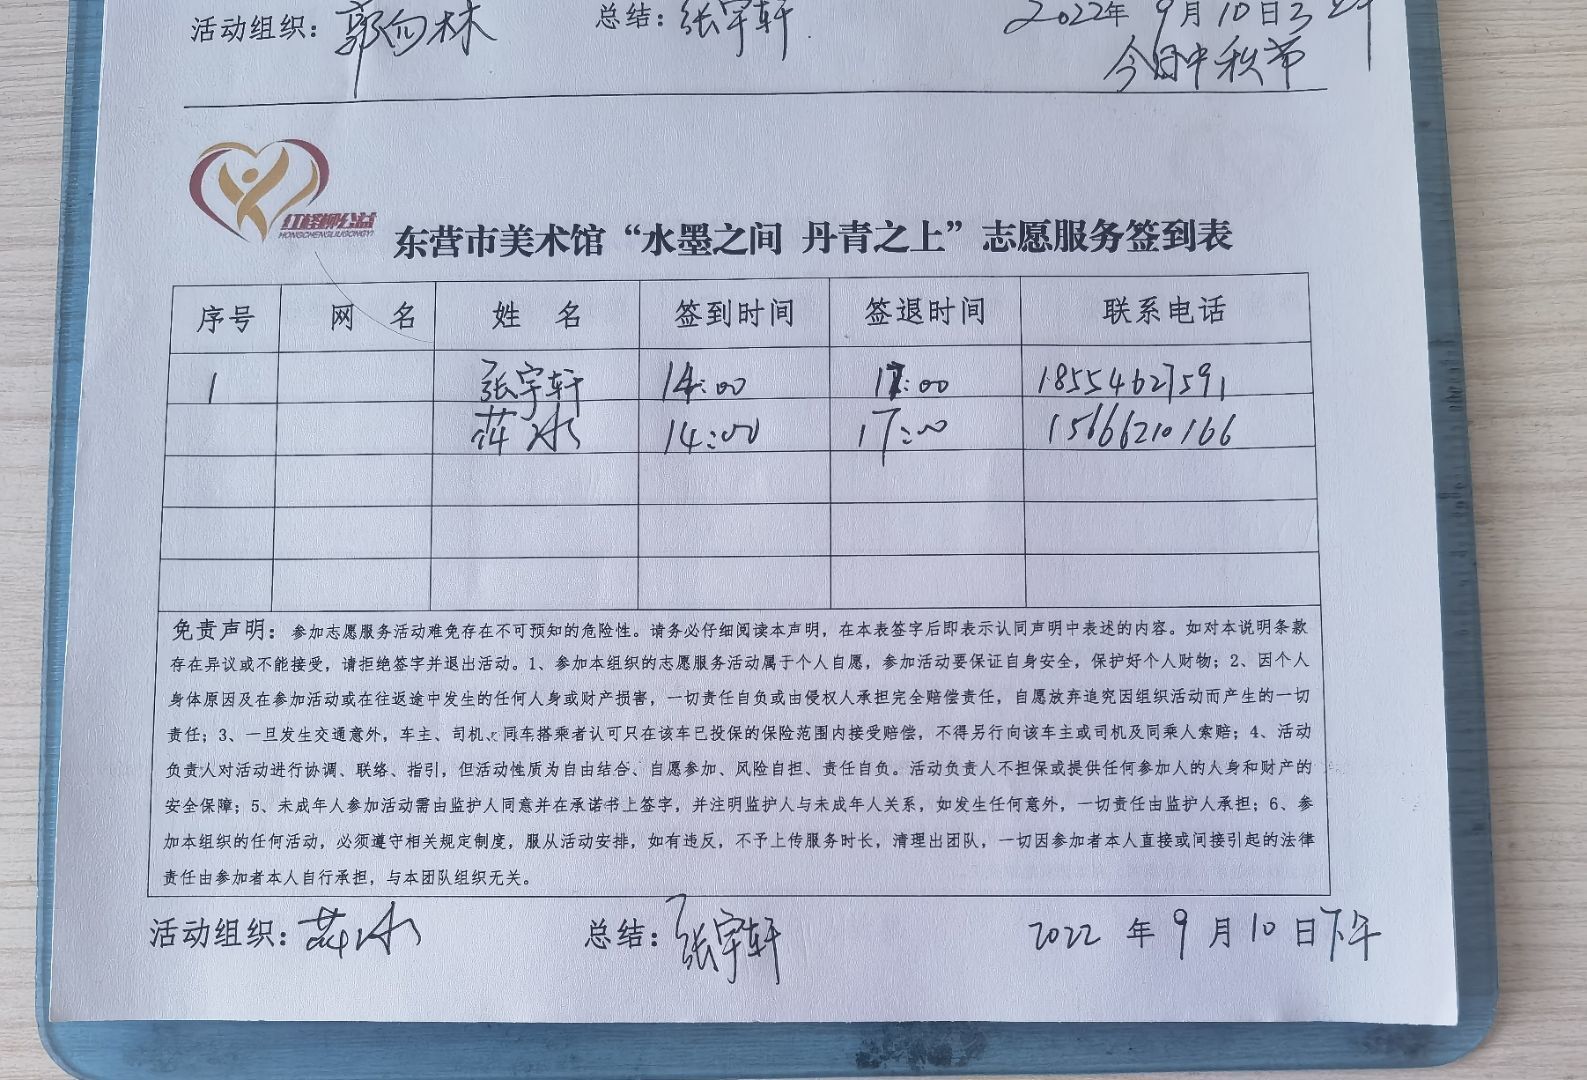 活动组织：郭向林 总结：张宇轩 2022年9月10日
今日中秋节
红柽柳公益
HONGCHENGLIUGONGYI
东营市美术馆“水墨之间 丹青之上”志愿服务签到表
序号 网 名 姓 名 签到时间 签退时间 联系电话
1 张宇轩 14:00 17:00 18554627591
14:00 17:00 15666210166
免责声明：参加志愿服务活动难免存在不可预知的危险性。请务必仔细阅读本声明，在本表签字后即表示认同声明中表述的内容。如对本说明条款
存在异议或不能接受，请拒绝签字并退出活动。1、参加本组织的志愿服务活动属于个人自愿，参加活动要保证自身安全，保护好个人财物；2、因个人
身体原因及在参加活动或在往返途中发生的任何人身或财产损害，一切责任自负或由侵权人承担完全赔偿责任，自愿放弃追究因组织活动而产生的一切
责任；3、一旦发生交通意外，车主、司机、同车搭乘者认可只在该车已投保的保险范围内接受赔偿，不得另行向该车主或司机及同乘人索赔；4、活动
负责人对活动进行协调、联络、指引，但活动性质为自由结合、自愿参加、风险自担、责任自负。活动负责人不担保或提供任何参加人的人身和财产的
安全保障；5、未成年人参加活动需由监护人同意并在承诺书上签字，并注明监护人与未成年人关系，如发生任何意外，一切责任由监护人承担；6、参
加本组织的任何活动，必须遵守相关规定制度，服从活动安排，如有违反，不予上传服务时长，清理出团队，一切因参加者本人直接或间接引起的法律
责任由参加者本人自行承担，与本团队组织无关。
活动组织： 总结：张宇轩 2022 年 9 月 10 日下午